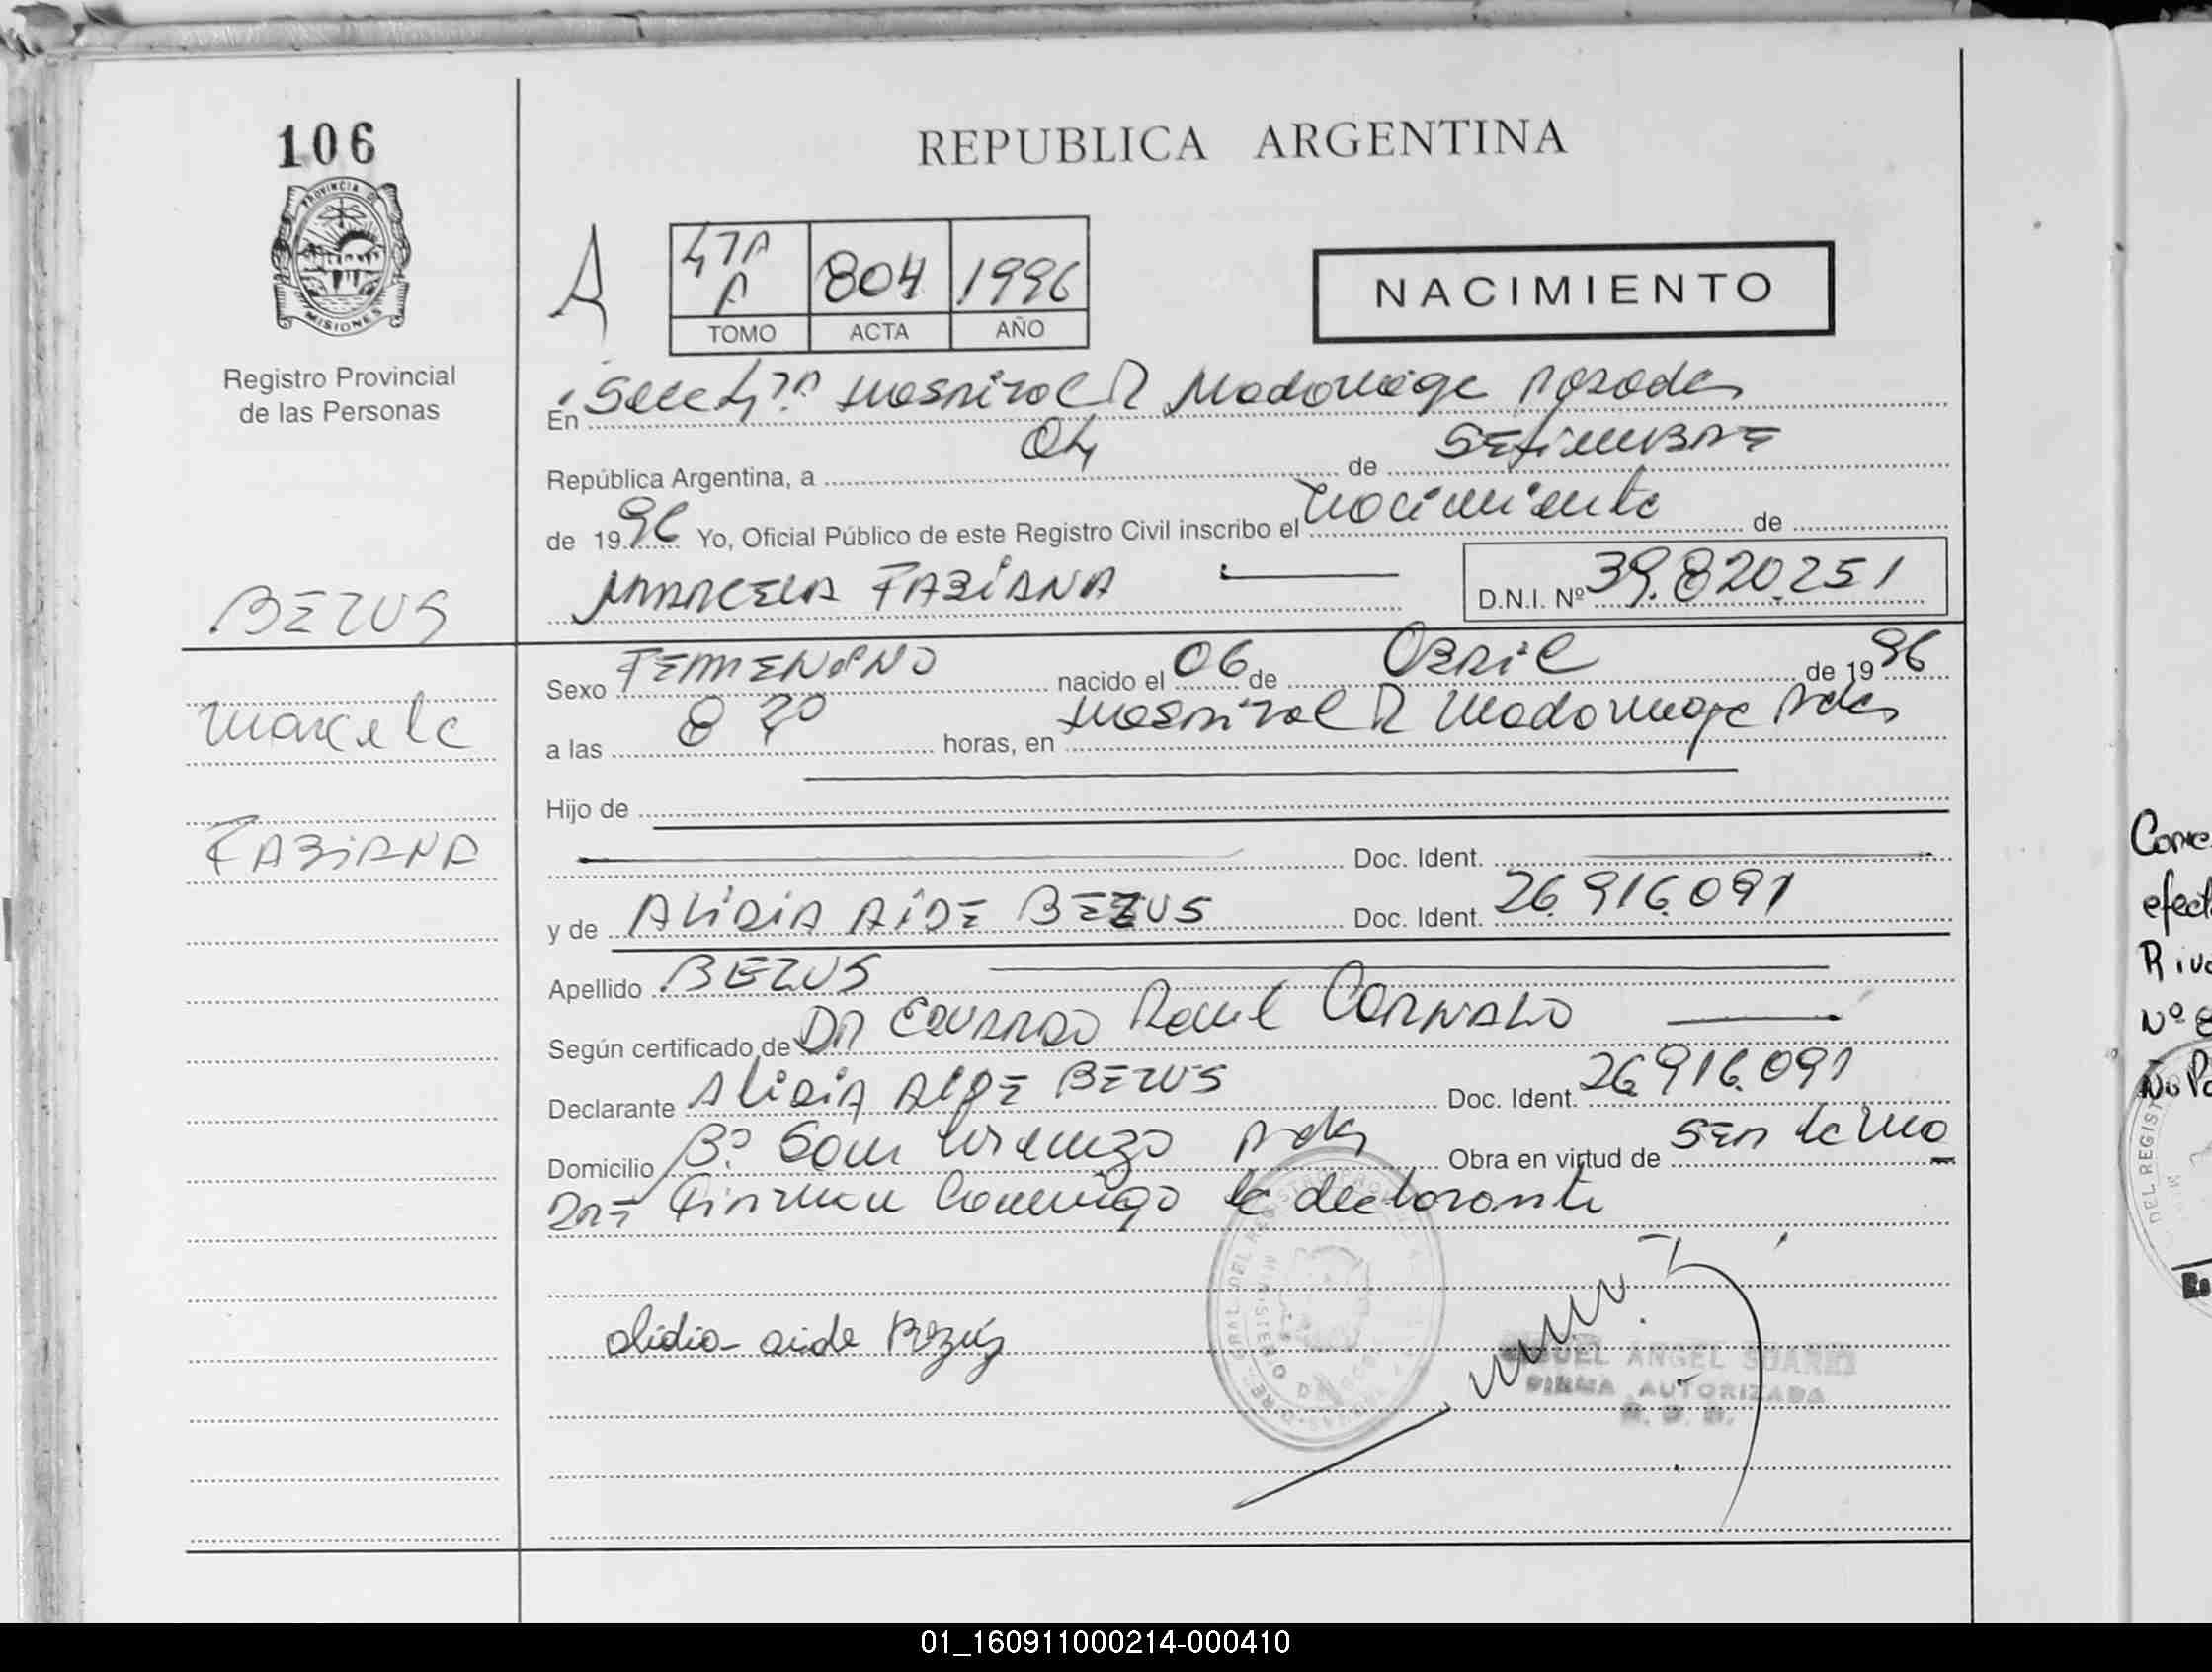 106
PROVINCIA D
MISIONES
Registro Provincial
de las Personas
BEZUS
Marcela
FABIANA
REPUBLICA ARGENTINA
A
47A
A
804
1996
TOMO
ACTA
AÑO
NACIMIENTO
En Secc 4ta Hospital R Madariaga Posadas
República Argentina, a 04 de SETIEMBRE
de 1996 Yo, Oficial Público de este Registro Civil inscribo el Nacimiento de
MARCELA FABIANA
D.N.I. Nº 39.820.251
Sexo FEMENINO nacido el 06 de ABRIL de 1996
a las horas, en Hospital R Madariaga Pdas
Hijo de
Doc. Ident.
y de ALIDIA AIDE BEZUS Doc. Ident. 26.916.091
Apellido BEZUS
Según certificado de DR EDUARDO Raul CORNALO
Declarante ALIDIA AIDE BEZUS Doc. Ident. 26.916.091
Domicilio Bº San Lorenzo Pdas Obra en virtud de SER la Ma
DRE Firman Conmigo la declarante
alidia aide Bezus
MIGUEL ANGEL SUAREZ
FIRMA AUTORIZADA
Nº
DEL REGIST
01_160911000214-000410